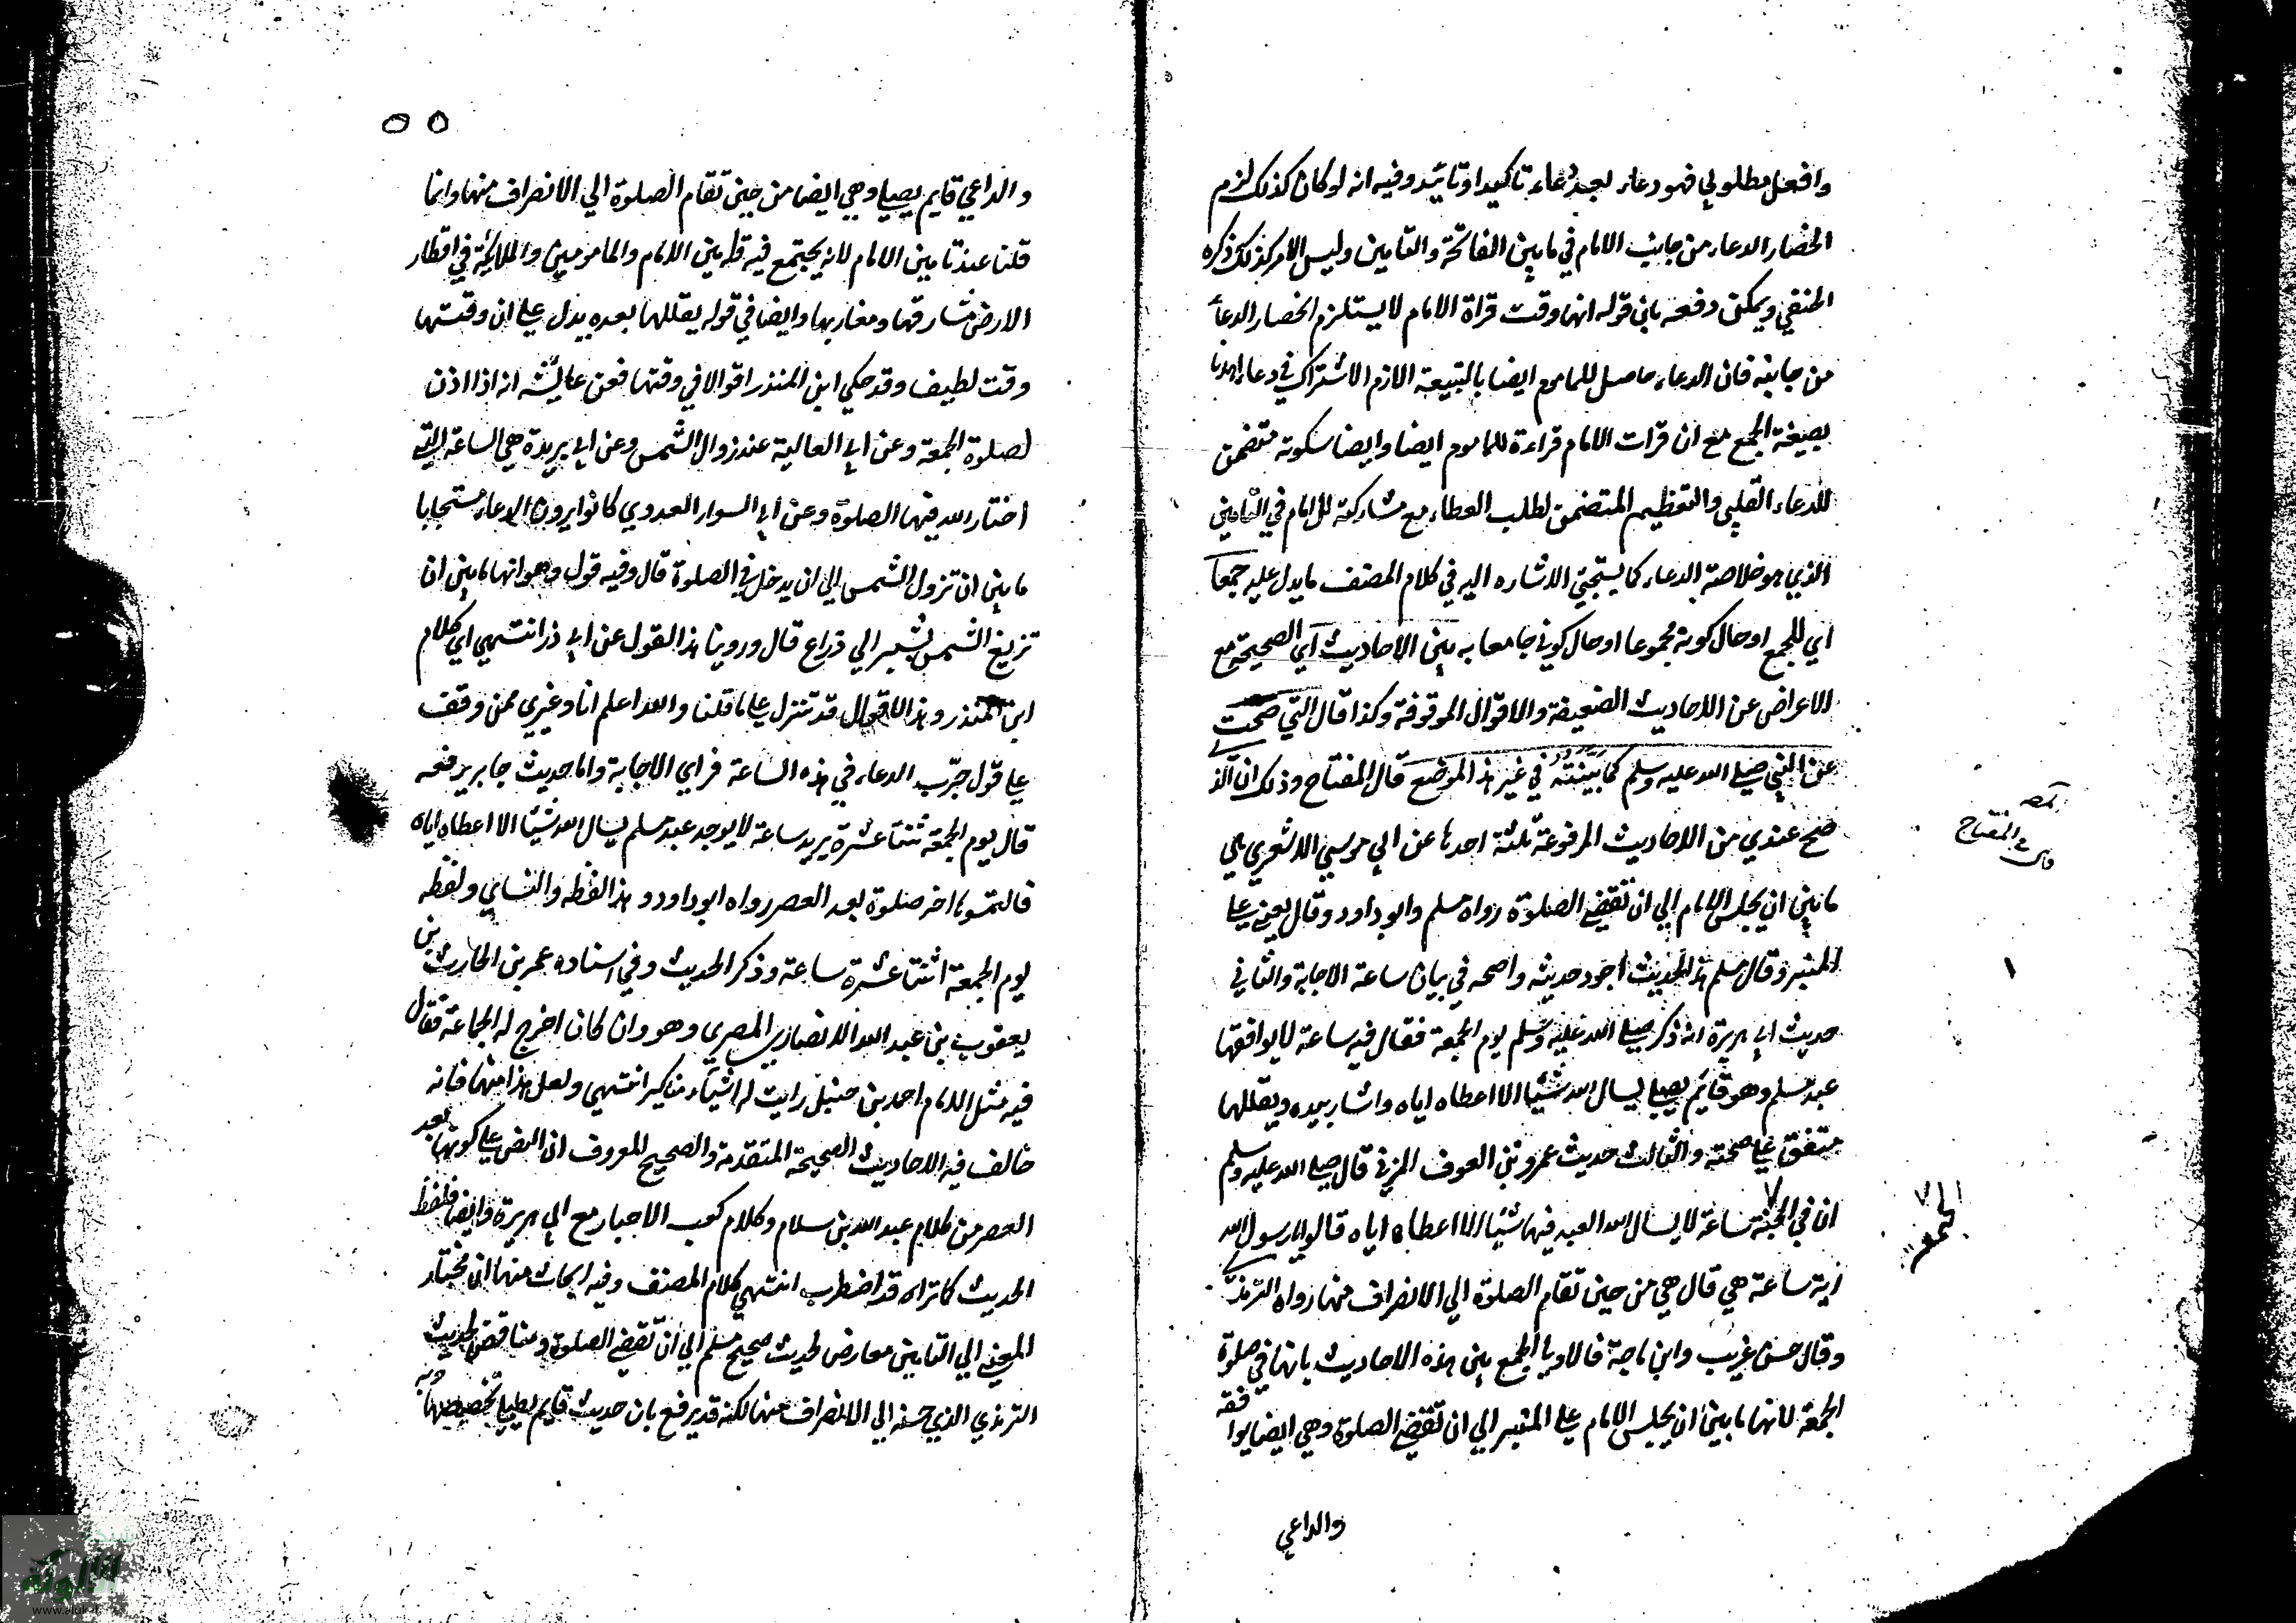 وافعل مطلوبي فهو دعاء بعد دعاء تاكيدا وتائيد وفيه انه لو كان كذلك لزم
انحصار الدعاء من جانب الامام في ما بين الفاتحة والتامين وليس الامر كذلك ذكره
الحنفي ويمكن دفعه بان قوله انها وقت قراة الامام لا يستلزم انحصار الدعاء
من جانبه فان الدعاء حاصل للماموم ايضا بالتبيعة الازم الاشتراك في دعاء اهدنا
بصيغة الجمع مع ان قرات الامام قراءة للماموم ايضا وايضا سكوته متضمن
للدعاء القلبي والتعظيم المتضمن لطلب العطاء مع مشاركته للامام في التامين
الذي هو خلاصة الدعاء كما يستجئ الاشاره اليه في كلام المصنف ما يدل عليه جمعا
اي للجمع او حال كونه مجموعا او حال كوني جامعا به بين الاحاديث اي الصحيحة مع
الاعراض عن الاحاديث الضعيفة والاقوال الموقوفة وكذا قال التي صحت
عن النبي صلى الله عليه وسلم كما بينته في غير هذ الموضع قال المفتاح وذلك ان الذ
صح عندي من الاحاديث المرفوعة ثلثة احدها عن ابي موسي الاشعري هي
ما بين ان يجلس الامام الي ان تقضي الصلوة رواه مسلم وابو داود وقال يعني على
المنبر وقال مسلم هذا الحديث اجود حديثه واصحه في بيان ساعة الاجابة والثاني
حديث ابي هريرة انه ذكر صلى الله عليه وسلم يوم الجمعة فقال فيه ساعة لا يوافقها
عبد مسلم وهو قائم يصلي يسال الله شيئا الا اعطاه اياه واشار بيده ويقللها
متفق على صحته والثالث حديث عمرو بن العوف المزني قال صلى الله عليه وسلم
ان في الجنة ساعة لا يسال الله العبد فيها شيئا الا اعطاه اياه قالوا يا رسول الله
اية ساعة هي قال هي من حين تقام الصلوة الي الانصراف منها رواه الترمذ
وقال حسن غريب وابن ماجة فالاولى الجمع بين هذه الاحاديث بانها في صلوة
الجمعة لانها ما بين ان يجلس الامام على المنبر الي ان تقضي الصلوة وهي ايضا يوافقه
والداعي
المفتاح
الجمعة
٥٥
والداعي قايم يصلي وهي ايضا من حين تقام الصلوة الي الانصراف منها وانما
قلنا عند تامين الامام لانه يجتمع فيه تامين الامام والمامومين والملائكة في اقطار
الارض مشارقها ومغاربها وايضا في قوله يقللها بعده بيدل على ان وقتها
وقت لطيف وقد حكي ابن المنذر اقوالا في وقتها فعن عايشه انه اذا اذن
لصلوة الجمعة وعن ابي العالية عند زوال الشمس وعن ابي بريدة هي الساعة التي
اختار الله فيها الصلوة وعن ابي السوار العدوي كانوا يرون الدعاء مستجابا
ما بين ان تزول الشمس الي ان يدخل في الصلوة قال وفيه قول وهو انها ما بين ان
تزيغ الشمس بشبر الي ذراع قال وروينا هذا القول عن ابي ذر انتهي اي كلام
ابن المنذر وهذا الاقوال قد تتنزل على ما قلنا والله اعلم انا وغيري ممن وقف
على قول جرب الدعاء في هذه الساعة فراي الاجابة واما حديث جابر يرفعه
قال يوم الجمعة ثنتا عشرة يريد ساعة لا يوجد عبد مسلم يسال الله شيئا الا اعطاه اياه
فالتمسوها اخر صلوة بعد العصر رواه ابو داود وهذا لفظه والنساي ولفظه
يوم الجمعة اثنتا عشرة ساعة وذكر الحديث وفي اسناده عمر بن الحارث بن
يعقوب بن عبد الله الانصاري المصري وهو وان كان اخرج له الجماعة فقال
فيه مثل الامام احمد بن حنبل رايت له اشياء مناكير انتهي ولعل هذا منها فانه
خالف فيه الاحاديث الصحيحة المتقدمة والصحيح المعروف ان النص على كونها بعد
العصر من كلام عبد الله بن سلام وكلام كعب الاحبار مع ابي هريرة وايضا فلفظ
الحديث كما تراه قد اضطرب انتهي كلام المصنف وفيه ابحاث منها ان مختار
المعني الي التامين معارض لحديث صحيح مسلم الي ان تقضي الصلوة ومناقض لحديث
الترمذي الذي حسنه الي الانصراف منها لكنه قد يرفع بان حديث قايم يصلي تخصيصها وبه